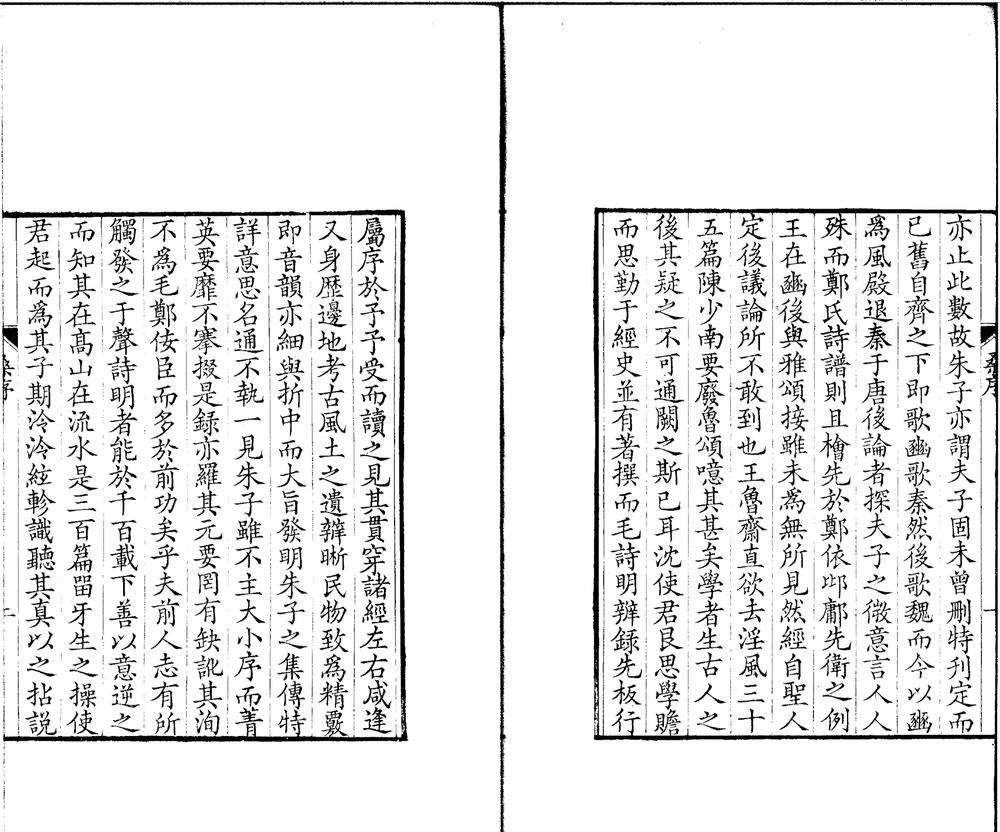 亦止此數故朱子亦謂夫子固未曾刪特刊定而
已舊自齊之下即歌豳歌秦然後歌魏而今以豳
為風殿退秦于唐後論者探夫子之微意言人人
殊而鄭氏詩譜則且檜先於鄭依邶鄘先衛之例
王在豳後與雅頌接雖未為無所見然經自聖人
定後議論所不敢到也王魯齋直欲去淫風三十
五篇陳少南要廢魯頌噫其甚矣學者生古人之
後其疑之不可通闕之斯已耳沈使君艮思學贍
而思勤于經史並有著撰而毛詩明辨錄先板行
屬序於予予受而讀之見其貫穿諸經左右咸逢
又身歷邊地考古風土之遺辨晰民物致為精覈
即音韻亦細與折中而大旨發明朱子之集傳特
詳意思名通不執一見朱子雖不主大小序而菁
英要靡不搴掇是録亦羅其元要罔有缺訛其洵
不為毛鄭佞臣而多於前功矣乎夫前人志有所
觸發之于聲詩明者能於千百載下善以意逆之
而知其在高山在流水是三百篇畱牙生之操使
君起而為其子期泠泠絃軫識聽其真以之拈説